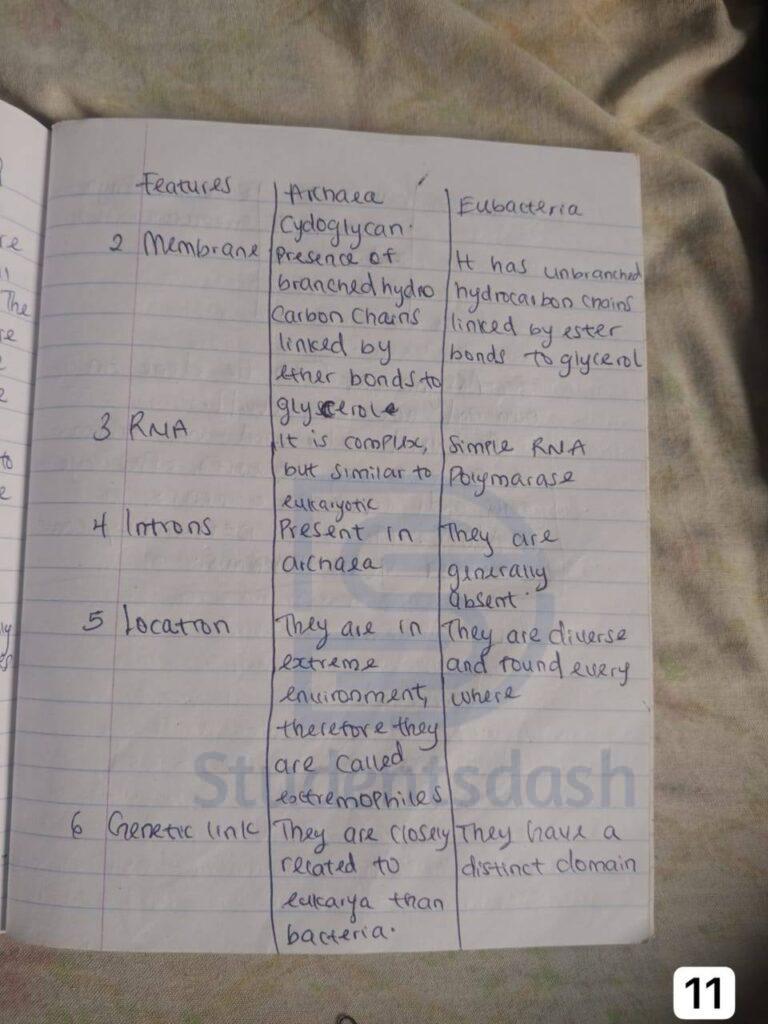 Features Archaea Eubacteria
Cycloglycan.
2 Membrane Presence of It has unbranched
branched hydro hydrocarbon chains
Carbon Chains linked by ester
linked by bonds to glycerol
ether bonds to
glyscerole
3 RNA It is complex, Simple RNA
but similar to Polymarase
eukaryotic
4 Introns Present in They are
archaea generally
absent.
5 Location They are in They are diverse
extreme and found every
environment, where
therefore they
are called
extremophiles
6 Genetic link They are closely They have a
related to distinct domain
eukarya than
bacteria.
Studentsdash
11